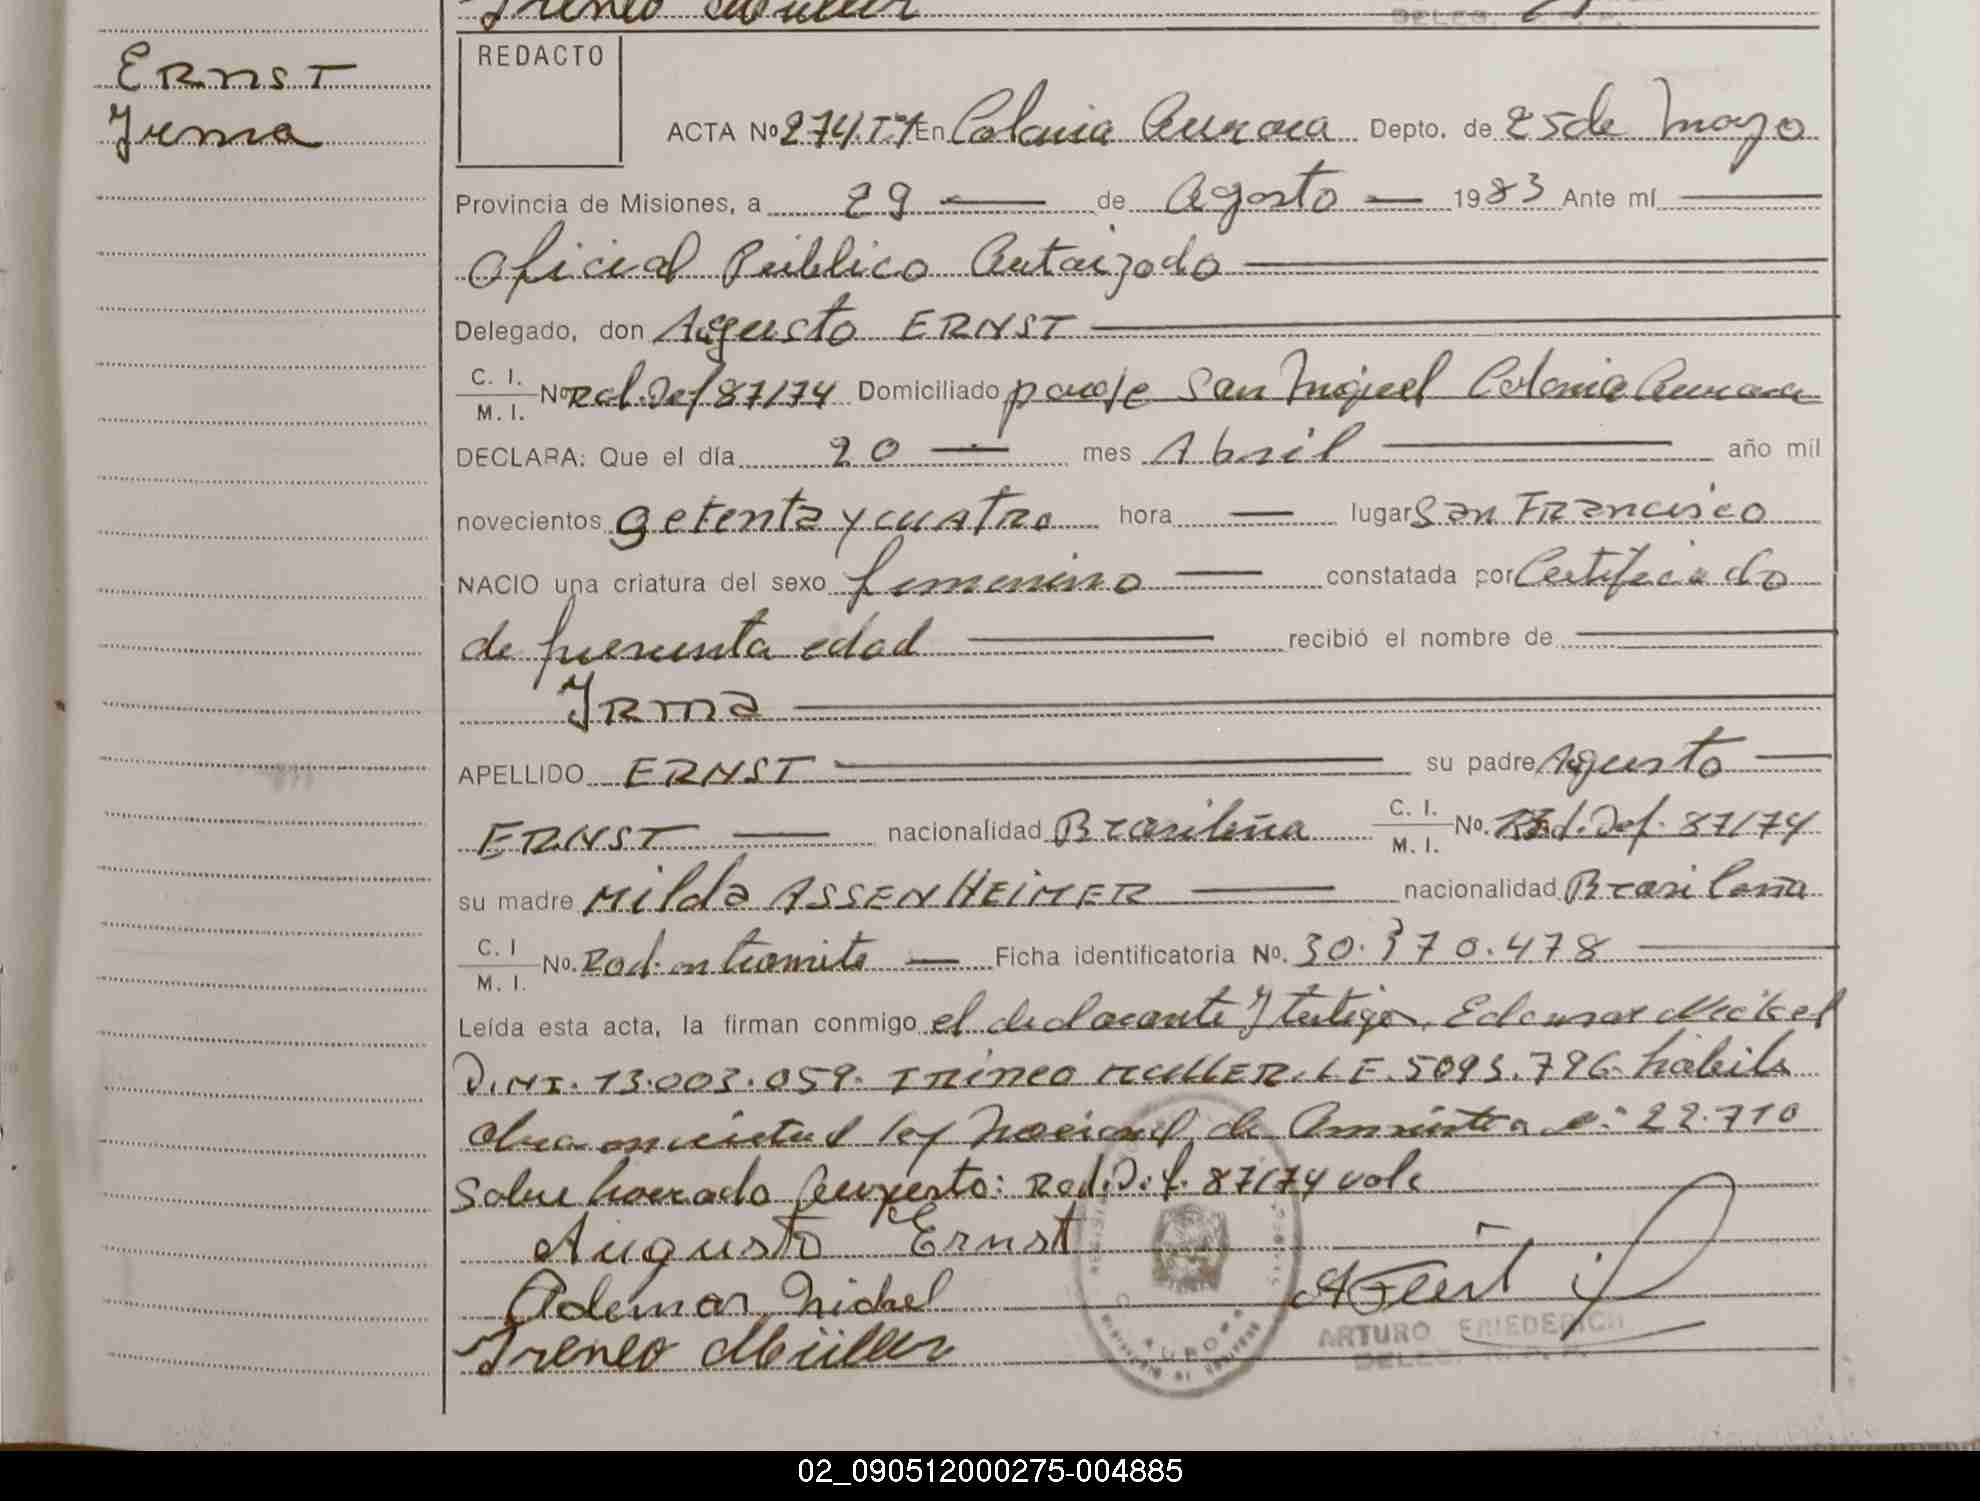 Ireneo Müller
DELEG.
ERNST
Irma
REDACTO
ACTA Nº 274.Tº1 En Colonia Aurora Depto. de 25 de Mayo
Provincia de Misiones, a 29 — de Agosto — 1983 Ante mí —
Oficial Público Autorizado —
Delegado, don Augusto ERNST —
C. I. / M. I. Nº Rad.Def 87/74 Domiciliado paraje San Miguel Colonia Aurora
DECLARA: Que el día 20 — mes Abril — año mil
novecientos setenta y cuatro hora — lugar San Francisco
NACIO una criatura del sexo femenino — constatada por Certificado
de presunta edad — recibió el nombre de —
Irma —
APELLIDO ERNST — su padre Augusto —
ERNST — nacionalidad Brasileña C. I. / M. I. No. Rad. Def. 87/74
su madre Milda ASSENHEIMER — nacionalidad Brasileña
C. I / M. I. No. Rad. en tramite — Ficha identificatoria No. 30.370.478 —
Leída esta acta, la firman conmigo el declarante y testigos, Edemar Nickel
D.N.I. 13.003.059. IRINEO MULLER. L E. 5093.796. hábiles
ley Nacional de Amnistia nº 22.710
Sobre borrado Augusto: Rad. Def. 87/74 vale
Augusto Ernst
Ademar Nickel
Ireneo Müller
AURORA
ARTURO FRIEDERICH
DELEG. R. P. P.
02_090512000275-004885